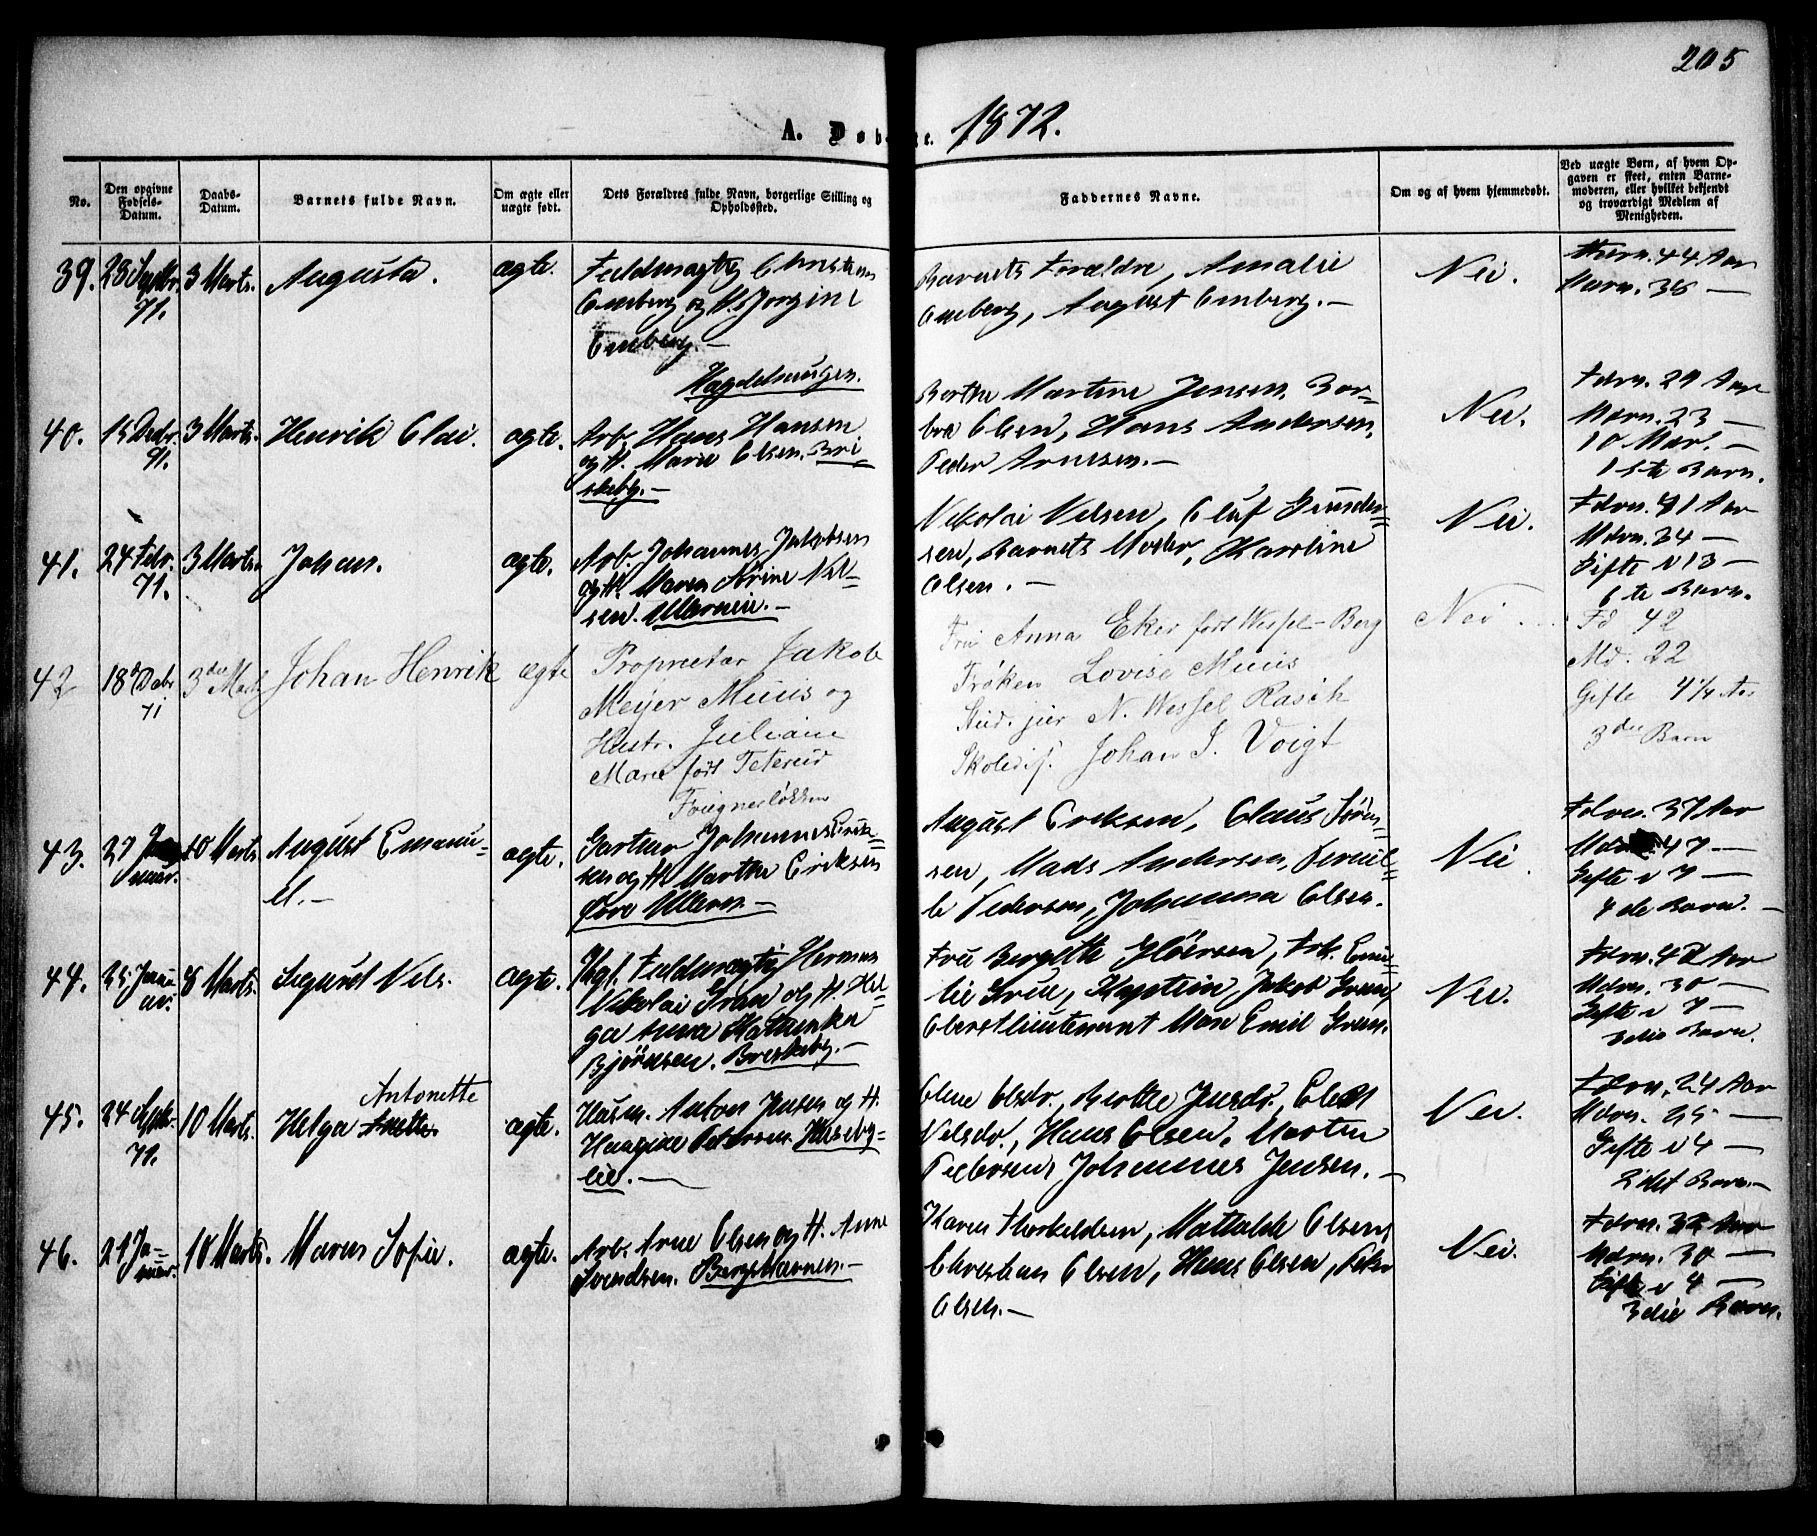 205
A. Døb
e. 1872.
No.
Den opgivne Fødsels-Datum.
Daabs-Datum.
Barnets fulde Navn.
Om ægte eller uægte født.
Dets Forældres fulde Navn, borgerlige Stilling og Opholdssted.
Faddernes Navne.
Om og af hvem hjemmedøbt.
Ved uægte Børn, af hvem Opgaven er skeet, enten Barnemoderen, eller hvilket bekjendt og troværdigt Medlem af Menigheden.
39. 23 Septbr. 71. 3 Marts. Augusta. ægte.
Fuldmægtig Christian
Emberg og H. Jørgine
Emberg.—
Hægdehaugen.
Barnets Forældre, Amalie
Emberg, August Emberg.—
Nei.
44 Aar
Mdrn. 38 —
40. 15 Decbr. 71. 3 Marts. Henrik Olai. ægte.
Arb. Hans Hansen
og H. Marie Olsen. Bri
skeby.—
Berthe Martine Jensen, Bar-
bra Olsen, Hans Andersen,
Peder Arnesen.—
Nei.
Fdrn. 29 Aar
Mdrn. 23 —
10 Mar. —
1ste Barn.
41. 24 Febr. 71. 3 Marts. Johan. ægte.
Arb. Johannes Jakobsen
og H. Maren Karine Nil-
sen. Ullerneie.—
Nikolai Nilsen, Oluf Gunder-
sen, Barnets Moder, Karoline
Olsen.—
Nei.
Fdrn. 41 Aar
Mdrn. 34 —
Gifte i 13 —
6te Barn.
42 18de Dcbr 71 3die Marts Johan Henrik ægte
Proprietær Jakob
Meyer Muus og
Hustr. Juliane
Marie født Feterud
Frognerløkken
Fru Anna Eker født Wessel-Berg
Frøken Lovise Muus
Stud. jur N. Wessel Rasch
Skoledis. Johan S. Voigt
Nei.
Fd 42
Md. 22
Gifte 4 1/4 Aar
3die Barn
43. 27 Januar. 10 Marts. August Emanu-
el.— ægte.
Gartner Johannes Erik-
sen og H. Marthe Eriksen
Øvre Ullern—
August Eriksen, Claus Søren-
sen, Mads Andersen, Pernil-
le Pedersen, Johanna Olsen.
Nei
Fdrn. 37 Aar
Mdrn. 47 —
Gifte i 7 —
4de Barn.—
44. 25 Januar. 8 Marts. Sigurd Nils. ægte.
Kgl. Fuldmægtig Herman
Nikolai Gran og H. Hel-
ga Anna Kathinka
Bjørnsen. Briskeby.—
Fru Bergitte Gløersen, Frk. Emi-
lie Gran, Kaptein Jakob Gran,
Oberstlieutenant Mon Emil Gran.
Nei.
Fdrn. 42 Aar
Mdrn. 30 —
Gifte i 7 —
3die Barn.
45. 24 Septbr. 71. 10 Marts. Helga Anette. Antonette ægte.
Husm. Anton Jensen og H.
Haagine Petersen. Huseby-
eie.—
Oline Olsdr., Berthe Jensdr., Eli
Nilsdr., Hans Olsen, Martin
Pedersen, Johannes Jensen.—
Nei.
Fdrn. 24 Aar
Mdrn. 25 —
Gifte i 4 —
2det Barn—
46. 21 Januar. 10 Marts. Maren Sofie. ægte.
Arb. Arne Olsen og H. Anne
Svendsen. Bergshavnen.—
Karen Thorkildsen, Mathilde Olsen,
Christian Olsen, Hans Olsen, Peder
Olsen.—
Nei.
Fdrn. 32 Aar
Mdrn. 30 —
Gifte i 4 —
3die Barn.